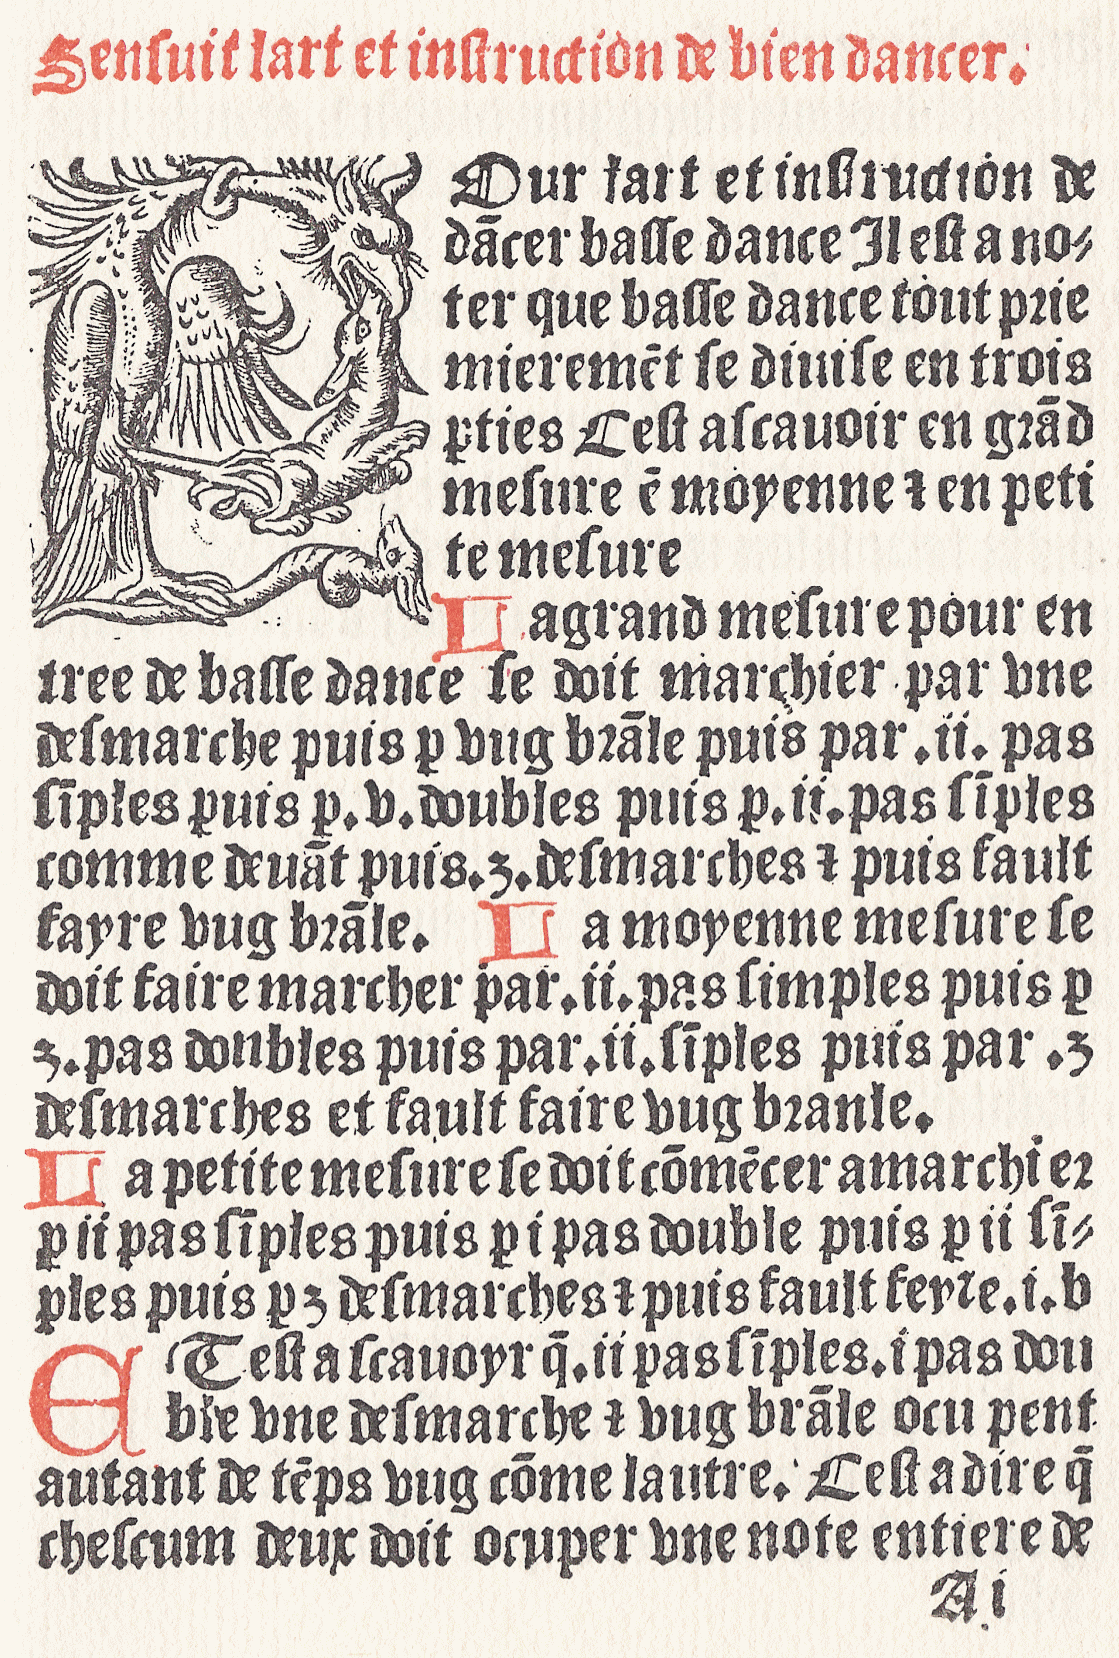 Sensuit lart et instruction de bien dancer.
POur lart et instruction de
dācer basse dance Il est a no⸗
ter que basse dance tout prie
mieremēt se diuise en trois
ꝑties Cest ascauoir en grād
mesure ē moyenne ⁊ en peti
te mesure
La grand mesure pour en
tree de basse dance se doit marchier par vne
desmarche puis ꝑ vng brāle puis par .ii. pas
sīples puis ꝑ.v.doubles puis ꝑ.ii.pas sīples
comme deuāt puis.3.desmarches ⁊ puis fault
fayre vug brāle. La moyenne mesure se
doit faire marcher par.ii.pas simples puis ꝑ
3.pas doubles puis par.ii.sīples puis par .3
desmarches et fault faire vug branle.
La petite mesure se doit cōmēcer amarchier
ꝑ ii pas sīples puis ꝑ i pas double puis ꝑ ii sī⸗
ples puis ꝑ 3 desmarches ⁊ puis fault feyre.i.b
ET est a scauoyr q̄.ii pas sīples.i pas dou
ble vne desmarche ⁊ vug brāle ocu pent
autant de tēps vug cōme lautre. Cest a dire q̄
chescum deux doit ocuper vne note entiere de
A i